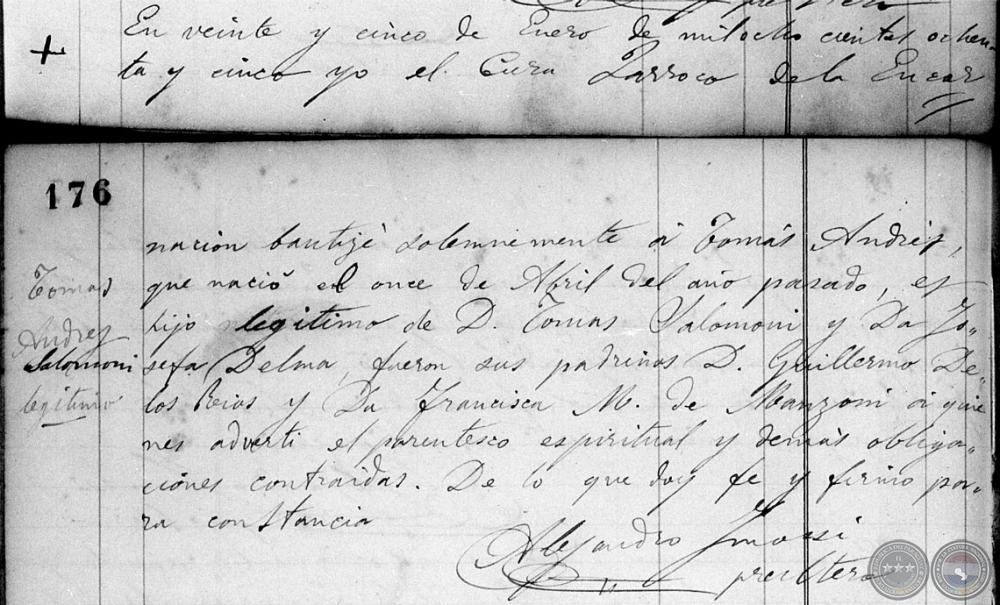 En veinte y cinco de Enero de mil ocho cientos ochen-
ta y cinco yo el Cura Parroco de la Encar
176
nacion bautizé solemnemente á Tomás Andres,
que nació el once de Abril del año pasado, es
hijo legitimo de D. Tomas Salomoni y Da Jo-
sefa Delma, fueron sus padrinos D. Guillermo De
los Rios y Da Francisca M. de Manzoni á quie-
nes adverti el parentesco espiritual y demás obliga-
ciones contraidas. De lo que doy fe y firmo pa-
ra constancia
Alejandro
presbitero
Tomas
Andres
Salomoni
legitimo